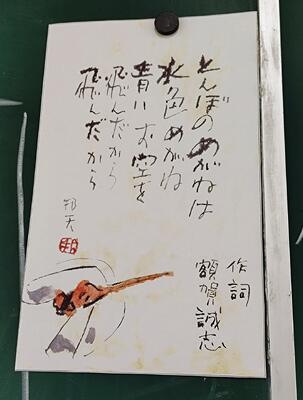 とんぼのめがねは
水色めがね
青いお空を
飛んだから
飛んだから
邦天
作詞
額賀誠志